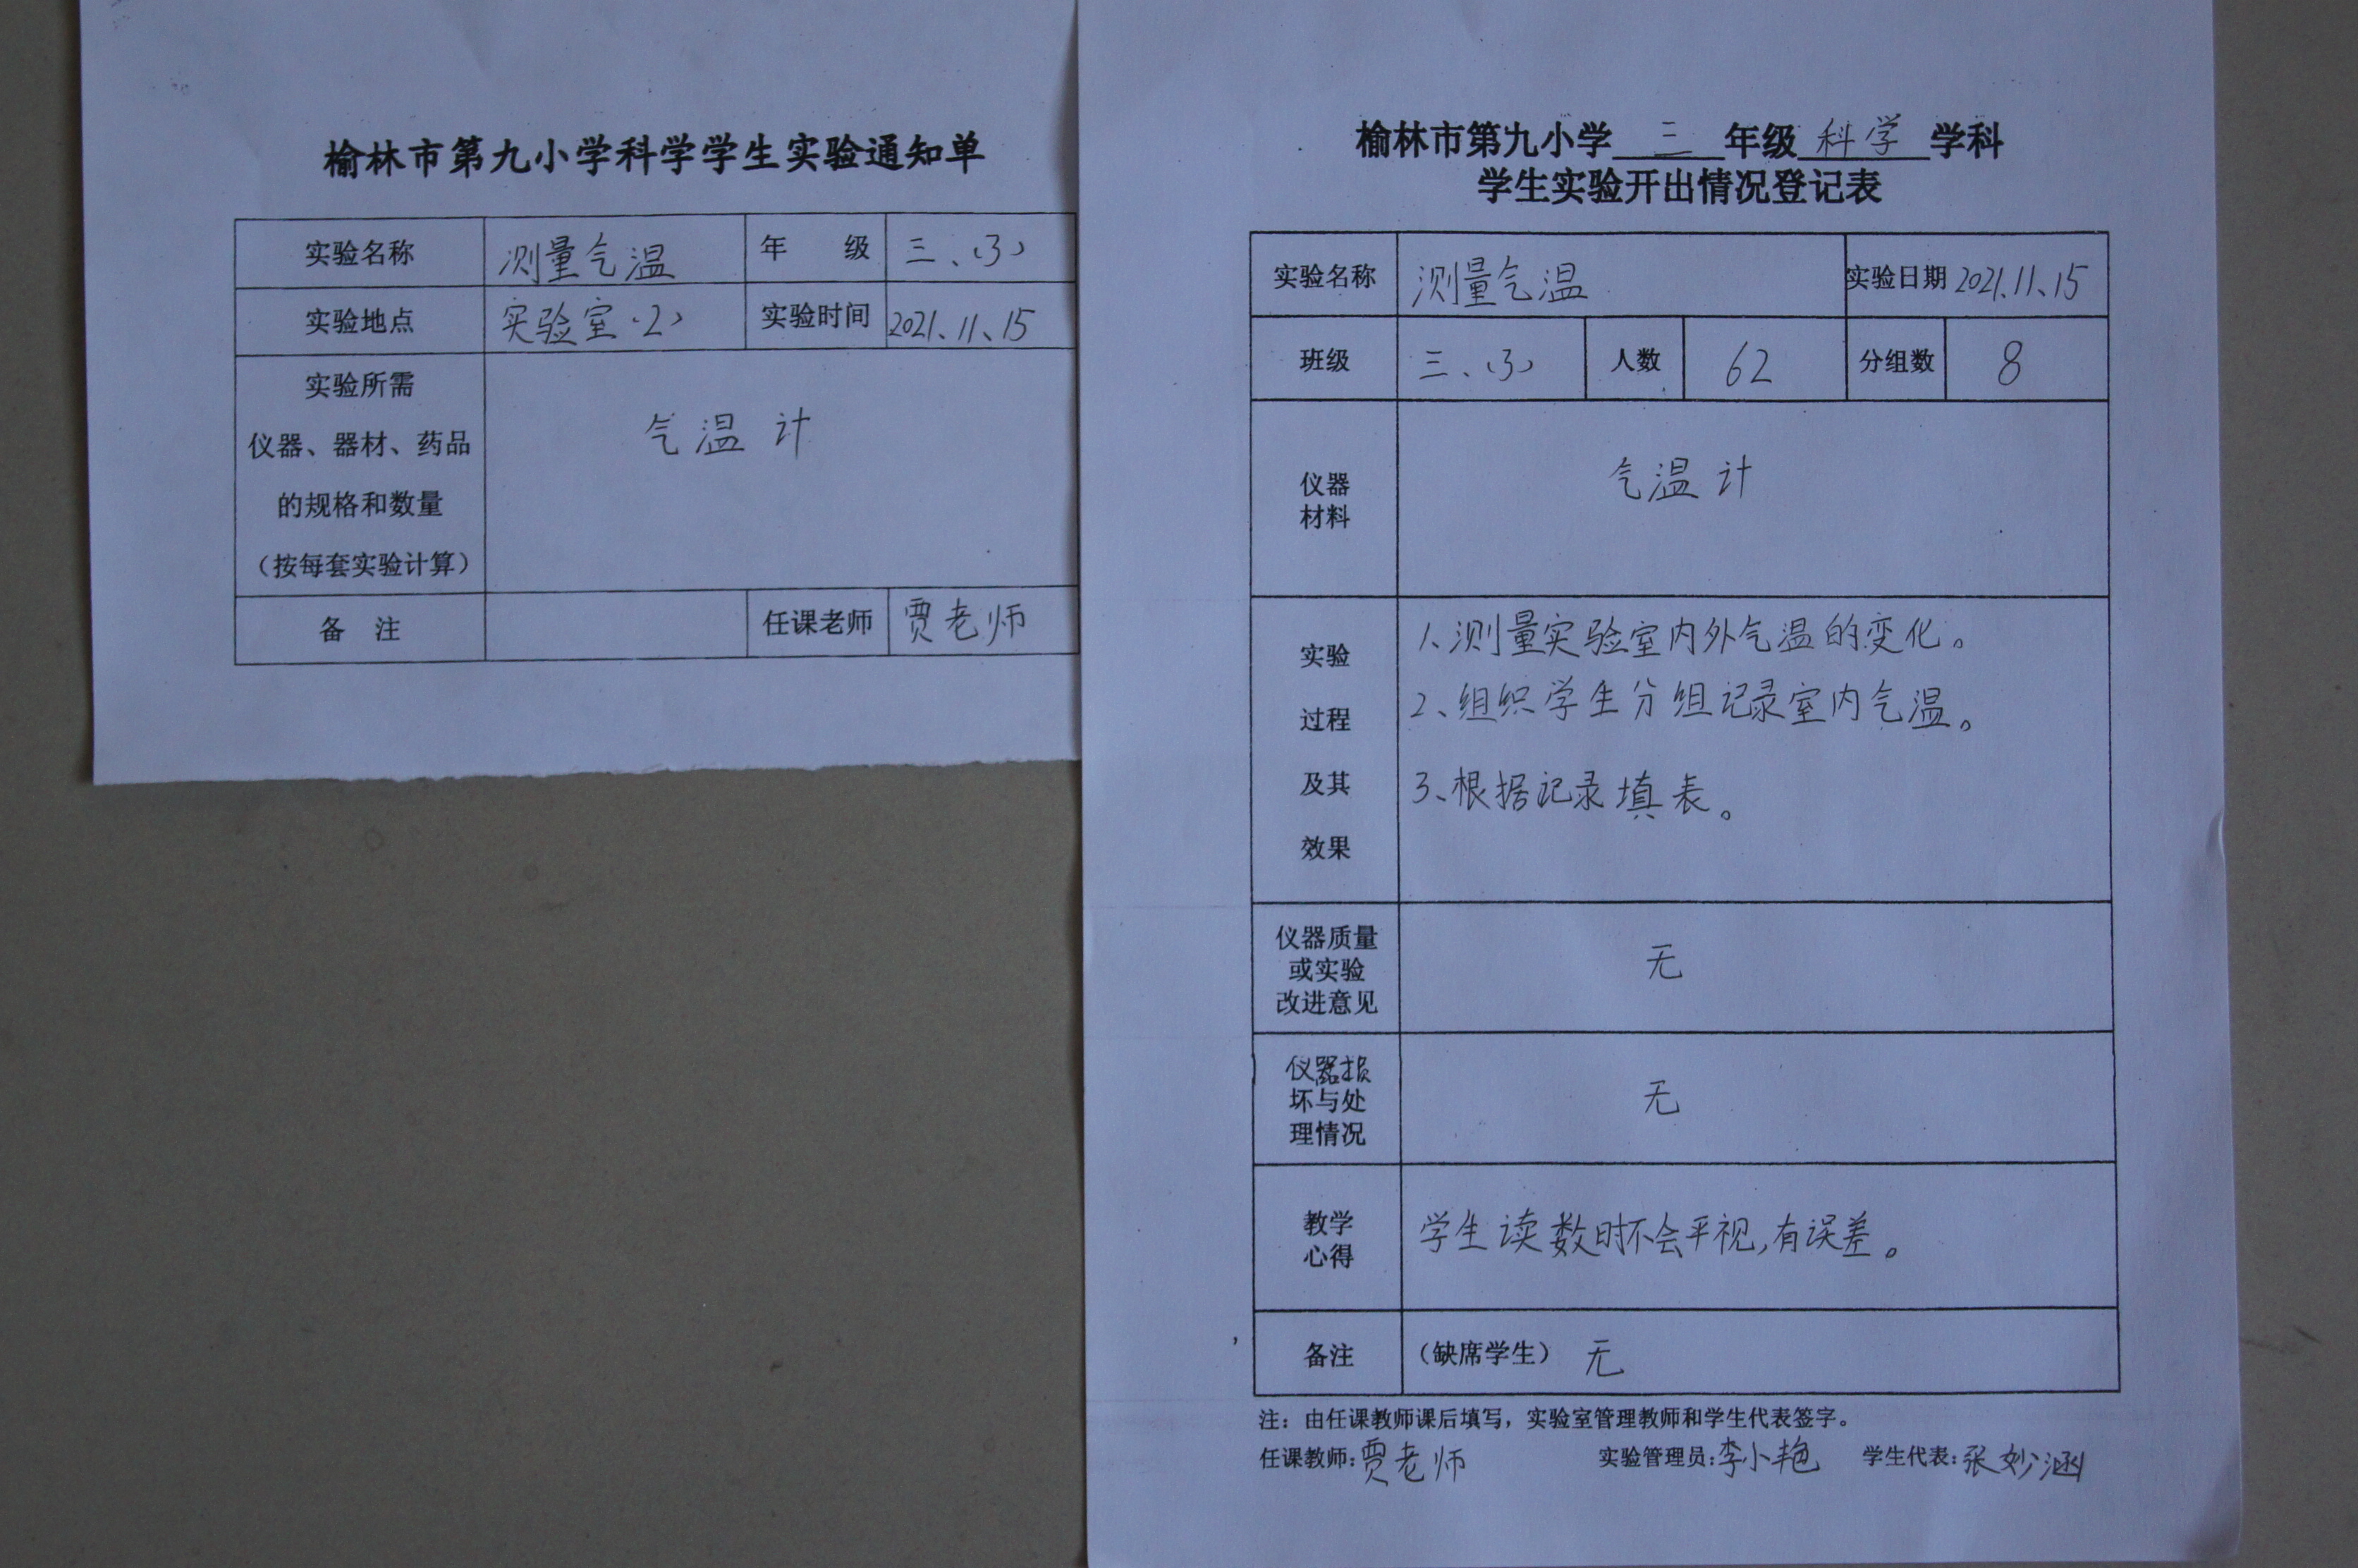 榆林市第九小学科学学生实验通知单
实验名称 测量气温 年 级 三、(3)
实验地点 实验室(2) 实验时间 2021、11、15
实验所需
仪器、器材、药品
的规格和数量
(按每套实验计算)
气温计
备 注 任课老师 贾老师
榆林市第九小学 三 年级 科学 学科
学生实验开出情况登记表
实验名称 测量气温 实验日期 2021、11、15
班级 三、(3) 人数 62 分组数 8
仪器
材料
气温计
实验
过程
及其
效果
1、测量实验室内外气温的变化。
2、组织学生分组记录室内气温。
3、根据记录填表。
仪器质量
或实验
改进意见
无
仪器损
坏与处
理情况
无
教学
心得
学生读数时不会平视,有误差。
备注 (缺席学生) 无
注:由任课教师课后填写,实验室管理教师和学生代表签字。
任课教师:贾老师 实验管理员:李小艳 学生代表:张妙涵